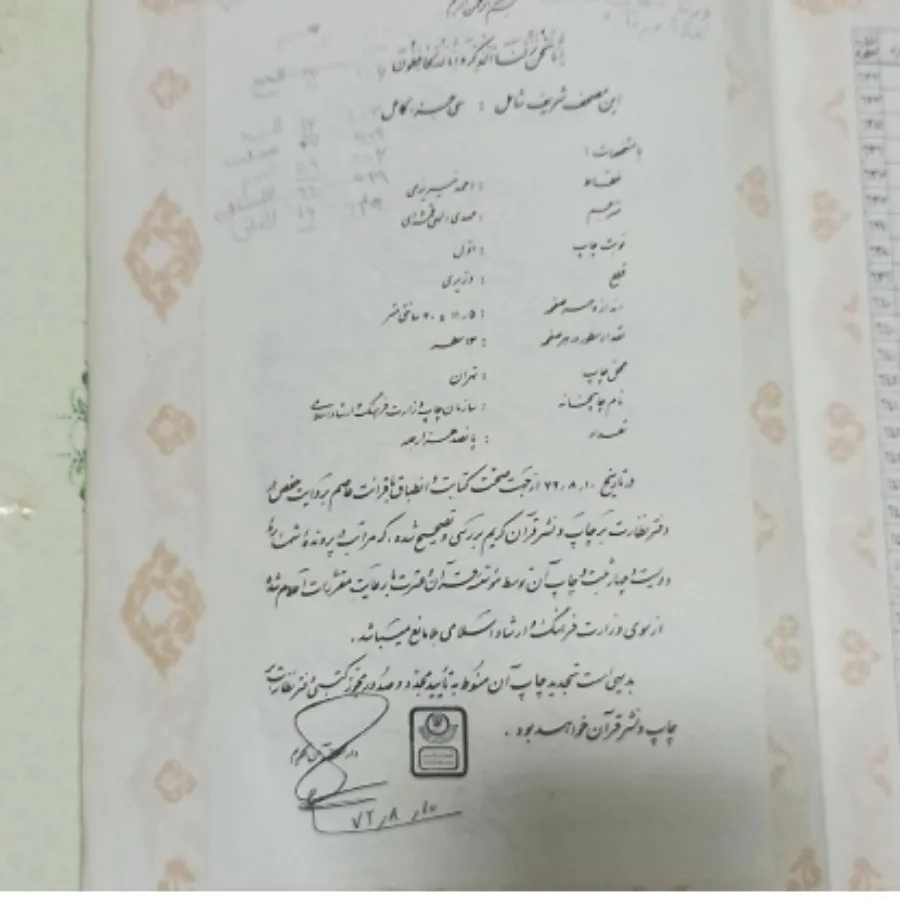 بسم الله الرحمن الرحیم
انا نحن نزلنا الذکر و انا له لحافظون
این مصحف شریف شامل : سی جزء کامل
با مشخصات :
خطاط : احمد نیریزی
مترجم : مهدی الهی قمشه‌ای
نوبت چاپ : اول
قطع : وزیری
اندازه هر صفحه : ۱۱٫۵ × ۲۰ سانتی متر
تعداد سطور در هر صفحه : ۱۳ سطر
محل چاپ : تهران
نام چاپخانه : سازمان چاپ وزارت فرهنگ و ارشاد اسلامی
تعداد : پانصد هزار جلد
در تاریخ ۷۲٫۸٫۱۰ از جهت صحت کتابت و انطباق با قرائت عاصم بروایت حفص در
دفتر نظارت بر چاپ و نشر قرآن کریم بررسی و تصحیح شده، که مراتب با پرونده شماره
دویست و چهار ثبت و چاپ آن توسط مؤسسه قرآن و عترت با رعایت مقررات اعلام شده
از سوی وزارت فرهنگ و ارشاد اسلامی بلامانع میباشد.
بدیهی است تجدید چاپ آن منوط به تأیید مجدد و صدور مجوز کتبی دفتر نظارت بر
چاپ و نشر قرآن خواهد بود.
۷۲٫۸٫۱۰